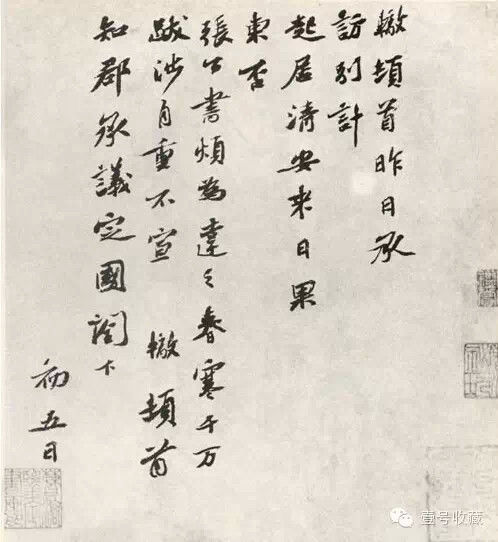 轍頓首昨日承
訪別計
起居清安來日果
東否
張公書煩為達之春寒千万
跋涉自重不宣 轍頓首
知郡承議定國閣下
初五日
壹号收藏